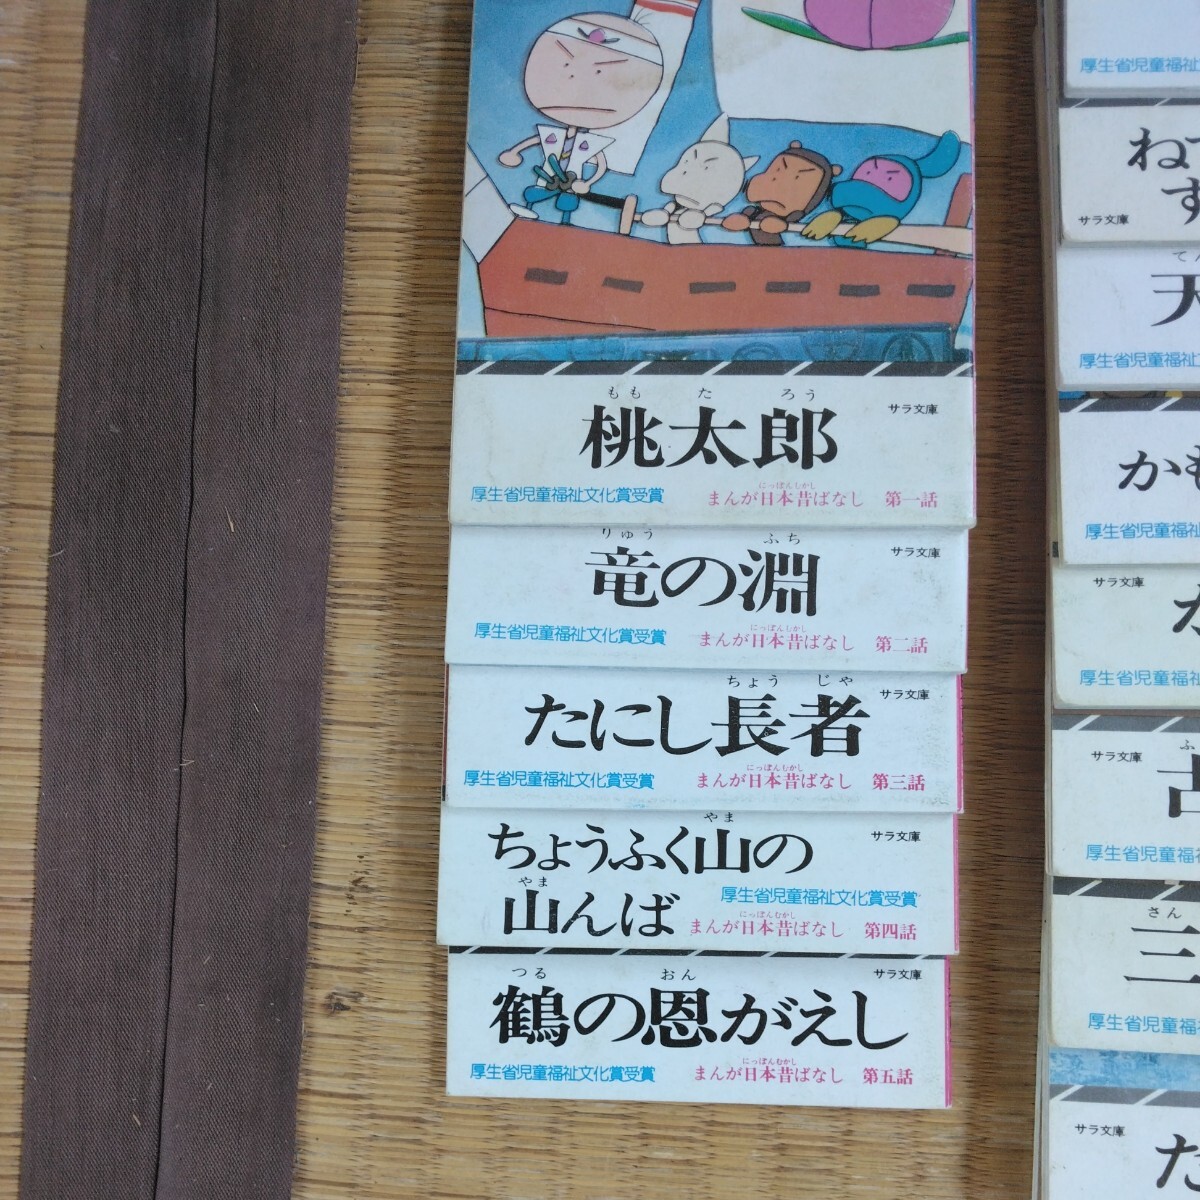 もも た ろう
桃太郎
サラ文庫
厚生省児童福祉文化賞受賞
にっぽんむかし
まんが日本昔ばなし 第一話
りゅう ふち
竜の淵
サラ文庫
厚生省児童福祉文化賞受賞
にっぽんむかし
まんが日本昔ばなし 第二話
ちょう じゃ
たにし長者
サラ文庫
厚生省児童福祉文化賞受賞
にっぽんむかし
まんが日本昔ばなし 第三話
やま
ちょうふく山の
サラ文庫
やま
山んば
厚生省児童福祉文化賞受賞
にっぽんむかし
まんが日本昔ばなし 第四話
つる おん
鶴の恩がえし
サラ文庫
厚生省児童福祉文化賞受賞
にっぽんむかし
まんが日本昔ばなし 第五話
厚生省児童福祉
ね
サラ文庫
て
天
厚生省児童福祉
かも
厚生省児童福祉
サラ文庫
厚生省児童福祉
サラ文庫
ふ
古
厚生省児童福祉
さん
三
厚生省児童福祉
サラ文庫
た